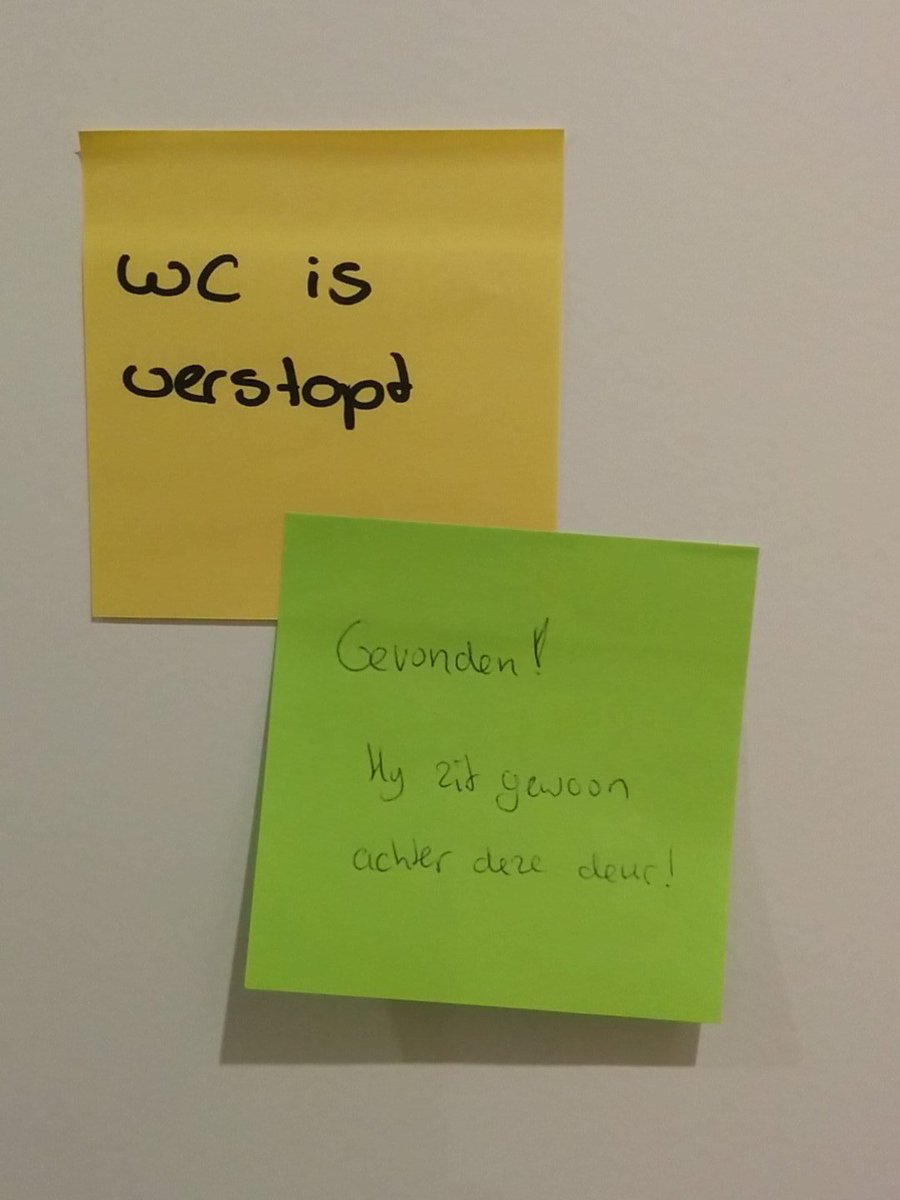 WC is
verstopt
Gevonden!
Hy zit gewoon
achter deze deur!